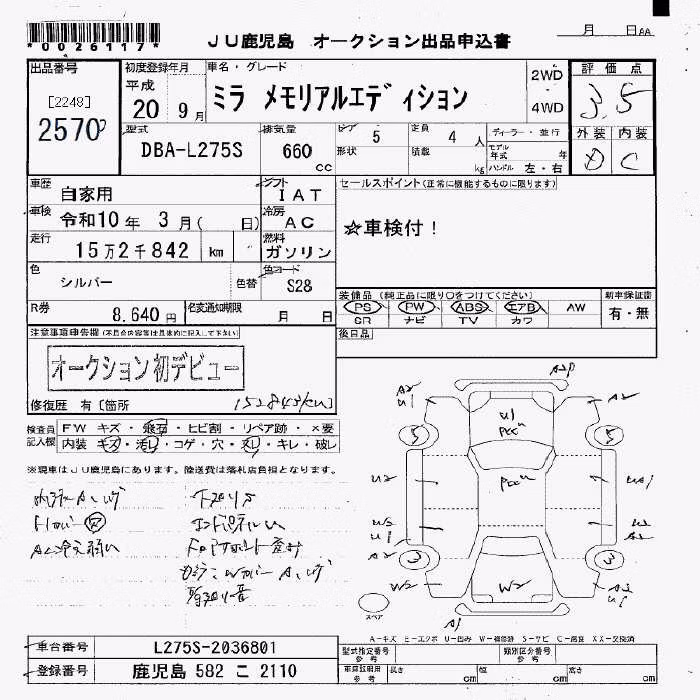 *0026117*
JU鹿児島 オークション出品申込書
月 日 AA
出品番号 初度登録年月 車名・グレード 評価点
[2248] 平成 2WD
2570 20 9月 ミラ メモリアルエディション 4WD 3.5
型式 排気量 ドア 5 定員 4 人 ディーラー・並行 外装 内装
DBA-L275S 660 cc 形状 積載 kg モデル年式 年 ハンドル 左・右 D C
車歴 自家用 シフト IAT セールスポイント(正常に機能するものに限ります)
車検 令和10年 3月( 日) 冷房 AC ☆車検付!
走行 15万2千842 km 燃料 ガソリン
色 シルバー 色替 色コード S28
装備品(純正品に限り○をつけてください) 新車保証書
R券 8,640円 名変通知期限 月 日 PS PW ABS エアB AW 有・無
SR ナビ TV カワ
注意事項申告欄(不具合内容等は具体的に記入して下さい) 後日品
オークション初デビュー
修復歴 有[箇所 152843km]
検査員記入欄 FW キズ・飛石・ヒビ割・リペア跡・×要
内装 キズ・汚レ・コゲ・穴・スレ・キレ・破レ
※現車はJU鹿児島にあります。陸送費は落札店負担となります。
下廻りS
A2 U1 A2P A2
U1
5 5
U2 UA1
U2 U2
A2 A2
3 3
W2 W2 A2 U1
A1
スペア
A-キズ E-エクボ U-凹み W-補修跡 S-サビ C-腐食 XX-交換済
車台番号 L275S-2036801 型式指定番号 参考 類別区分番号 参考
登録番号 鹿児島 582 こ 2110 車庫証明用 参考 長さ cm 幅 cm 高さ cm